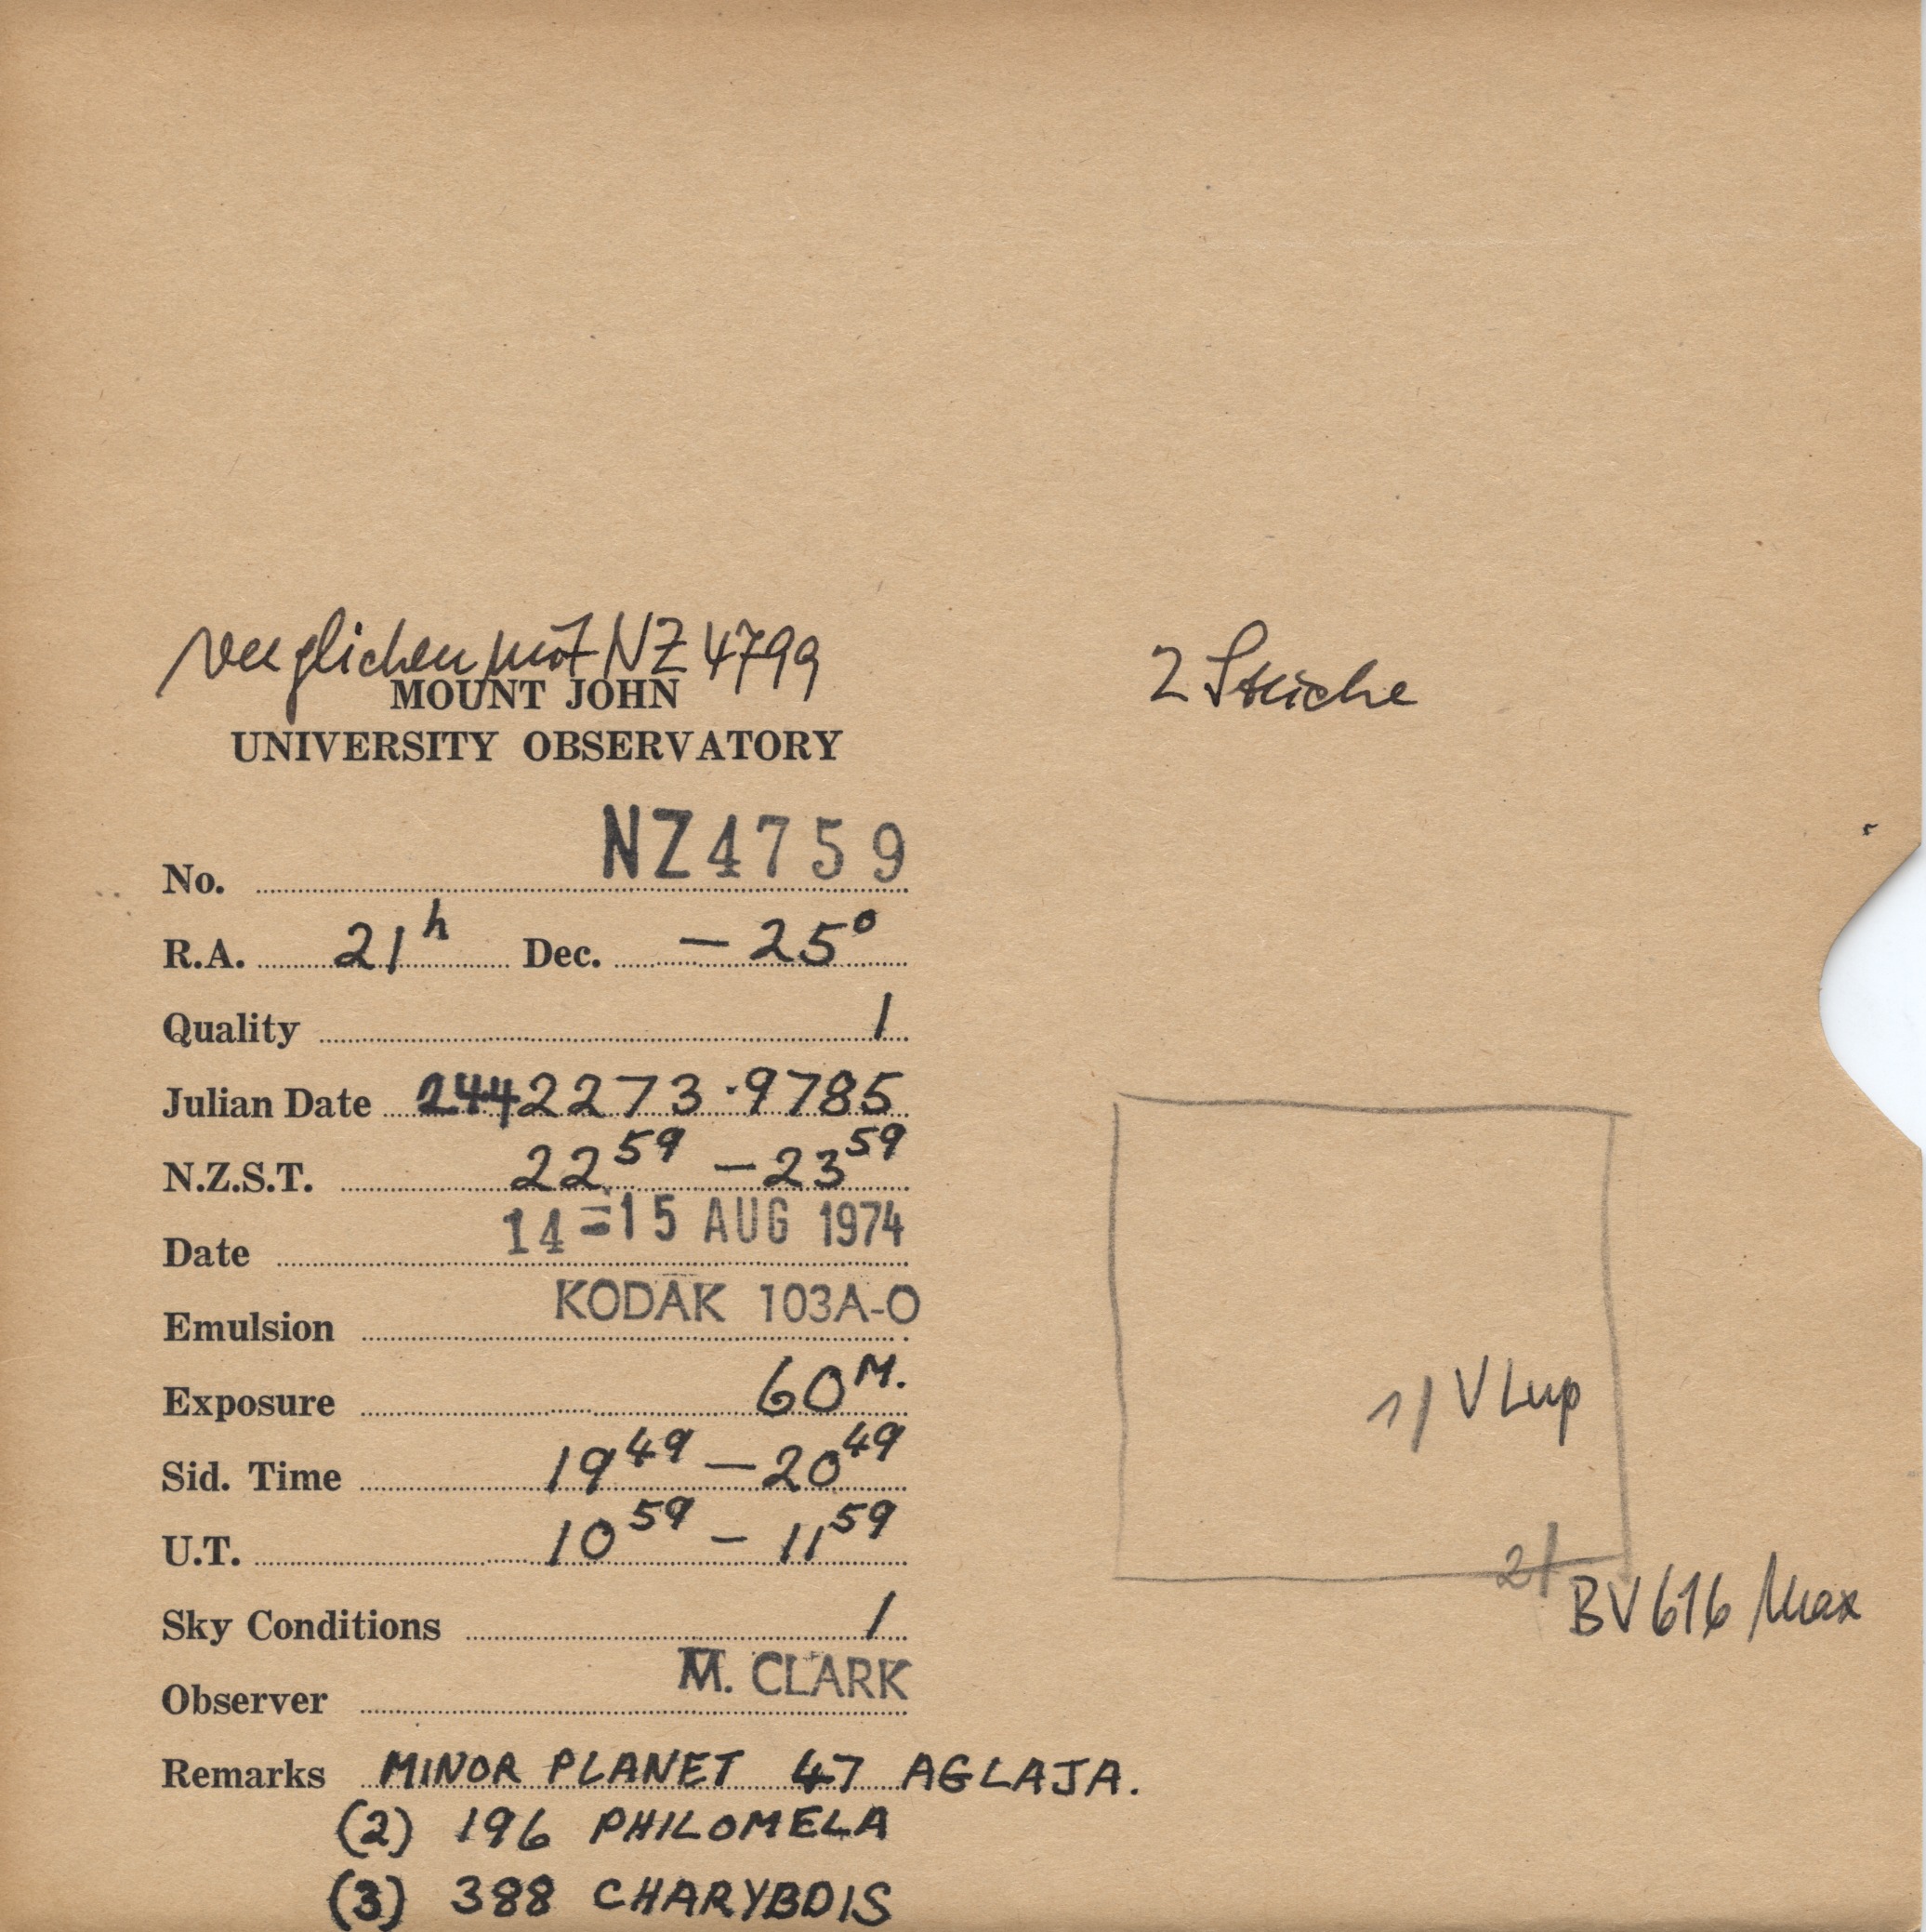 verglichen mit NZ 4799
2 Striche
MOUNT JOHN
UNIVERSITY OBSERVATORY
No. NZ4759
R.A. 21h Dec. – 25°
Quality 1
Julian Date 2442273.9785
N.Z.S.T. 22 59 – 23 59
Date 14 – 15 AUG 1974
Emulsion KODAK 103A-O
Exposure 60 M.
1/ V Lup
Sid. Time 19 49 – 20 49
U.T. 10 59 – 11 59
2/
BV 616 Max
Sky Conditions 1
Observer M. CLARK
Remarks MINOR PLANET 47 AGLAJA.
(2) 196 PHILOMELA
(3) 388 CHARYBDIS